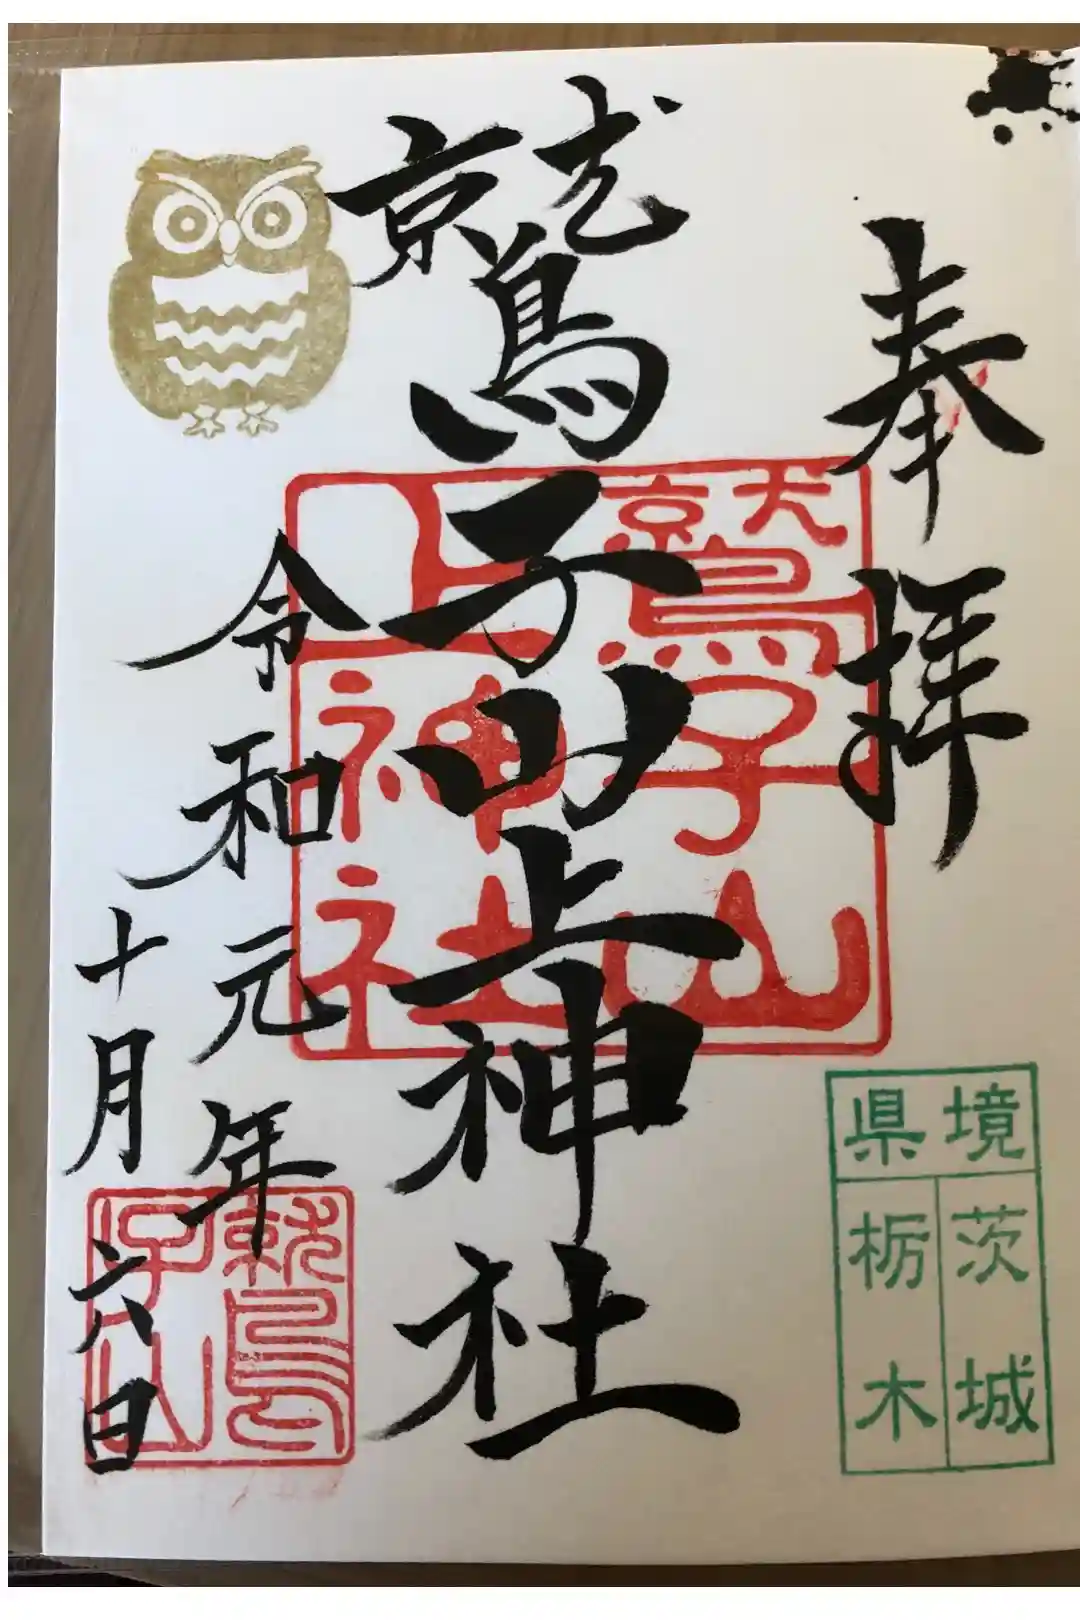 奉拝
鷲子山上神社
令和元年
十月六日
鷲子山
上神社
県境
茨城
栃木
鷲
子山